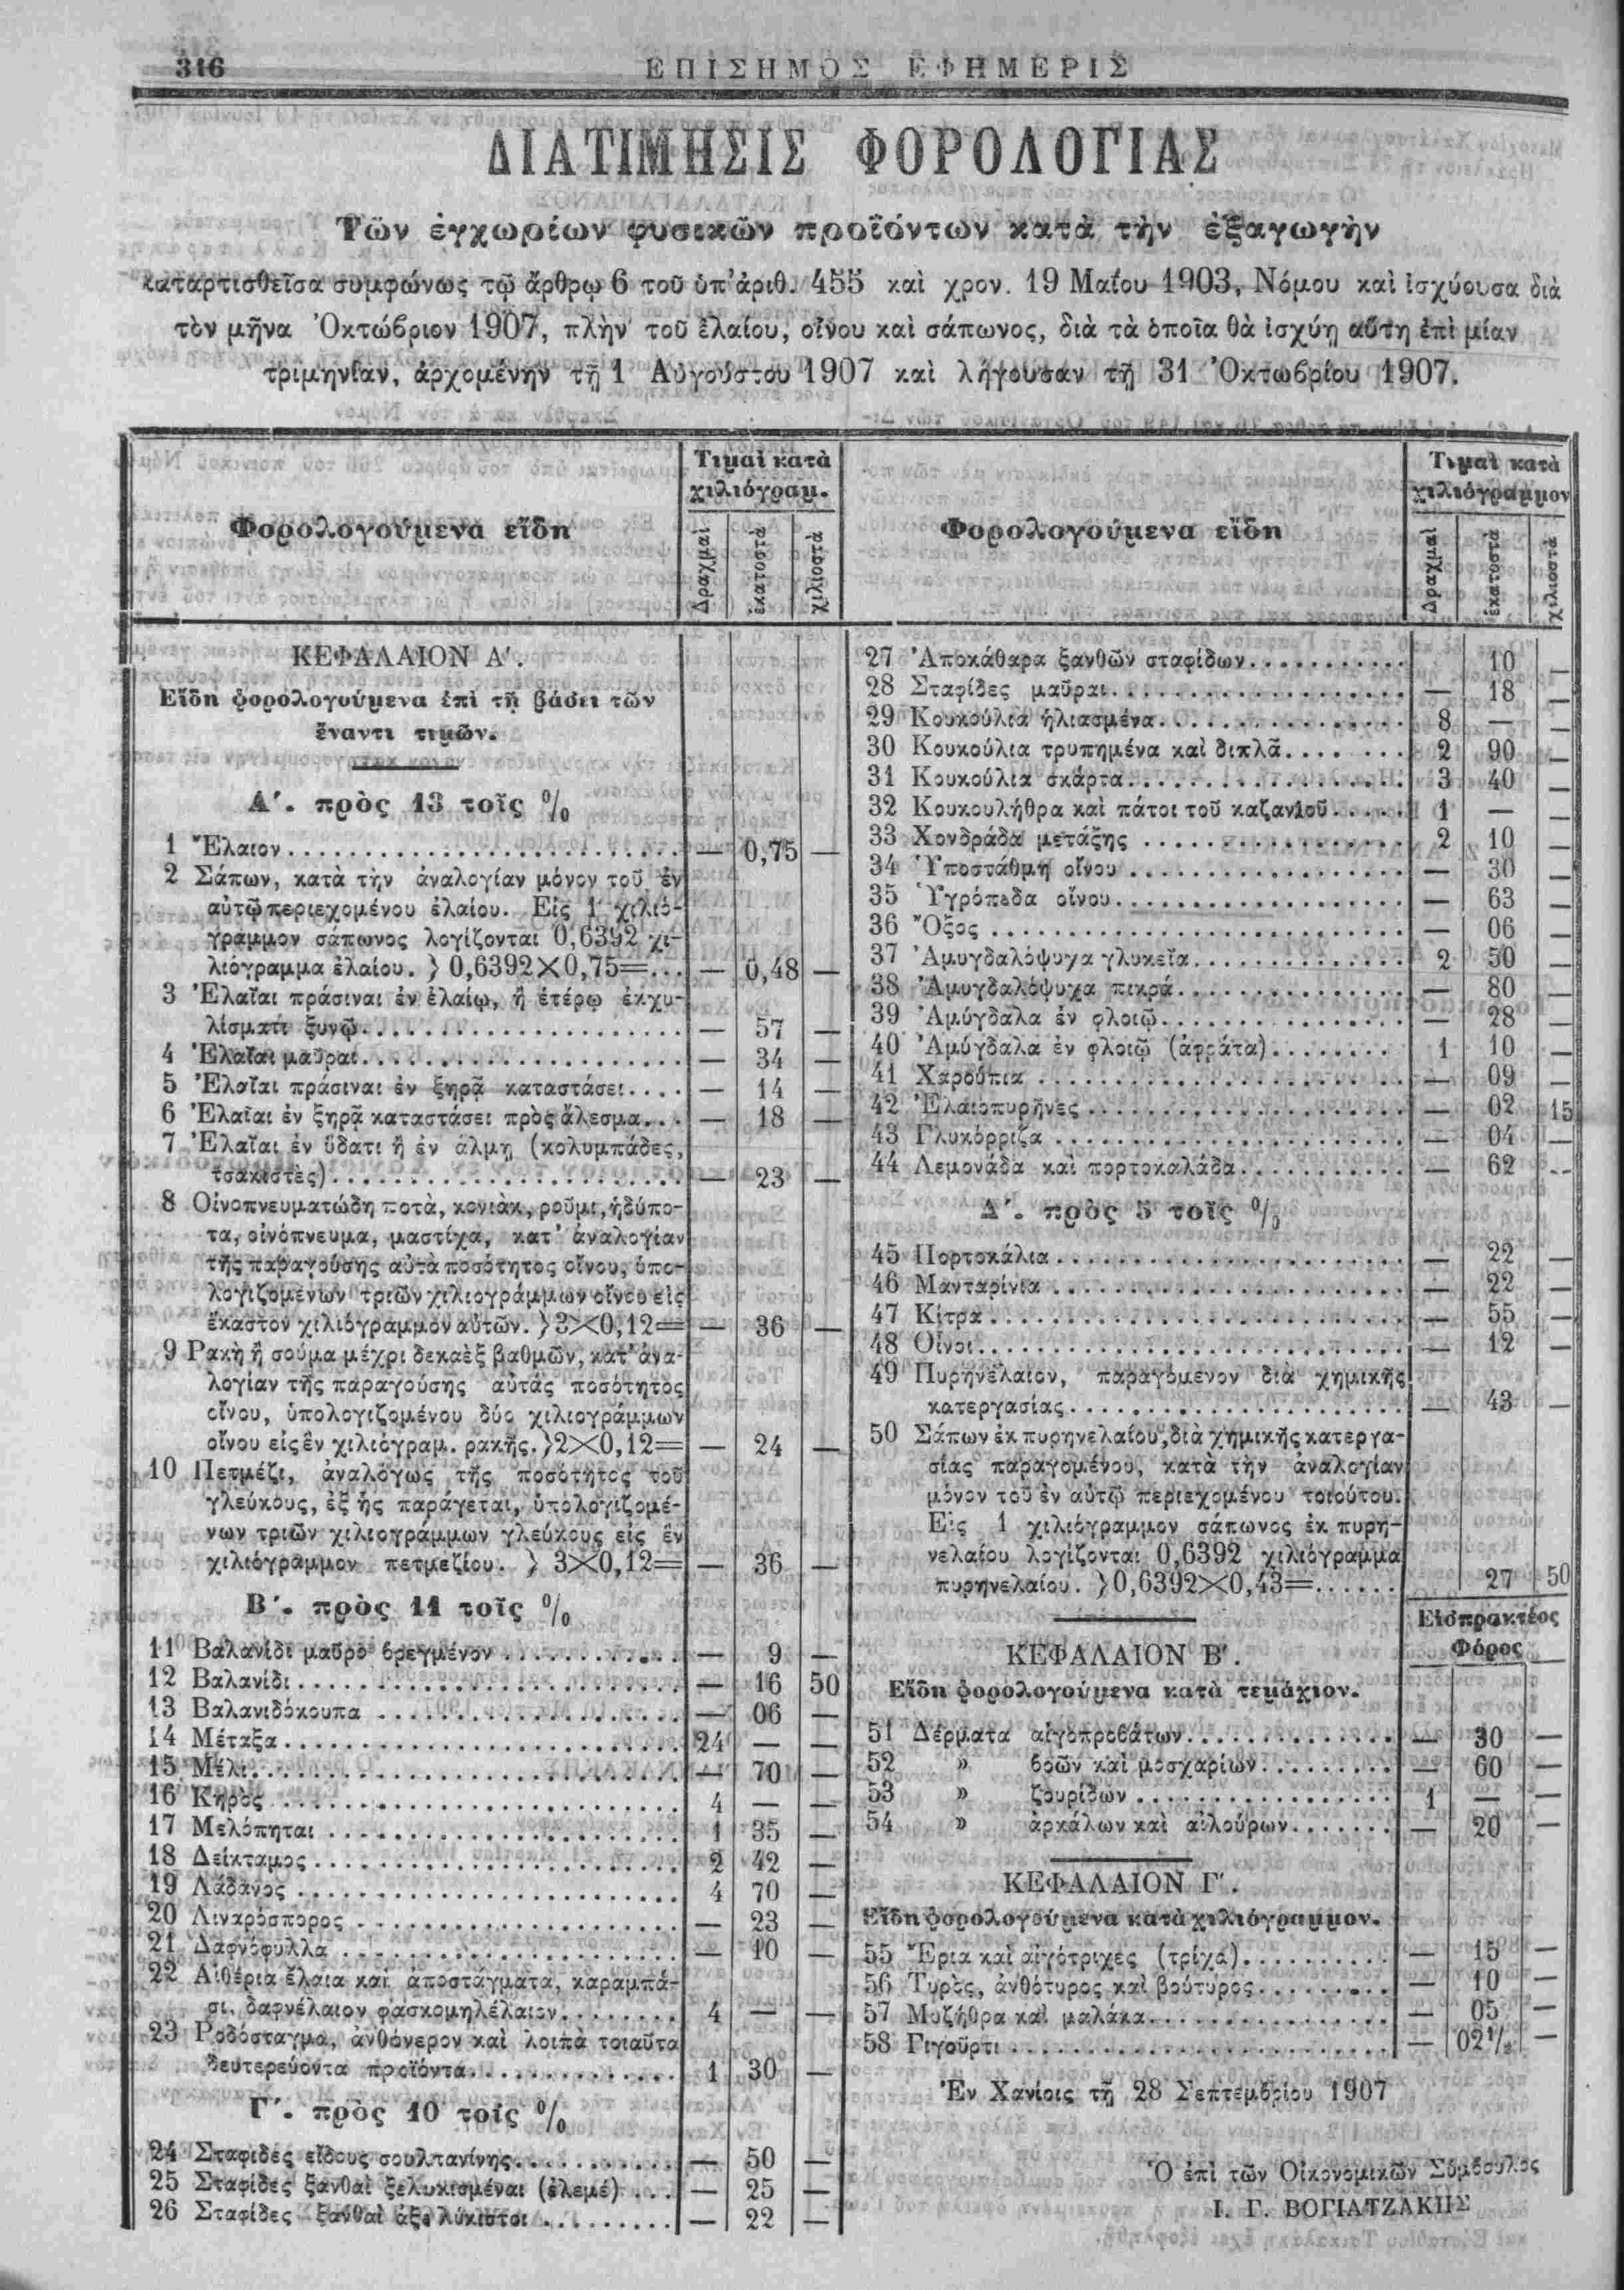 316
ΕΠΙΣΗΜΟΣ ΕΦΗΜΕΡΙΣ
ΔΙΑΤΙΜΗΣΙΣ ΦΟΡΟΛΟΓΙΑΣ
Τῶν ἐγχωρίων φυσικῶν προϊόντων κατὰ τὴν ἐξαγωγὴν
καταρτισθεῖσα συμφώνως τῷ ἄρθρῳ 6 τοῦ ὑπ' ἀριθ. 455 καὶ χρον. 19 Μαΐου 1903, Νόμου καὶ ἰσχύουσα διὰ
τὸν μῆνα Ὀκτώβριον 1907, πλὴν τοῦ ἐλαίου, οἴνου καὶ σάπωνος, διὰ τὰ ὁποῖα θὰ ἰσχύῃ αὕτη ἐπὶ μίαν
τριμηνίαν, ἀρχομένην τῇ 1 Αὐγούστου 1907 καὶ λήγουσαν τῇ 31 Ὀκτωβρίου 1907.
Φορολογούμενα εἴδη
Τιμαὶ κατὰ
χιλιόγραμ.
Δραχμαὶ
ἑκατοστὰ
χιλιοστὰ
ΚΕΦΑΛΑΙΟΝ Α'.
Εἴδη φορολογούμενα ἐπὶ τῇ βάσει τῶν
ἔναντι τιμῶν.
Α'. πρὸς 13 τοῖς %
1 Ἔλαιον — 0,75 —
2 Σάπων, κατὰ τὴν ἀναλογίαν μόνον τοῦ ἐν
αὐτῷ περιεχομένου ἐλαίου. Εἰς 1 χιλιό-
γραμμον σάπωνος λογίζονται 0,6392 χι-
λιόγραμμα ἐλαίου. } 0,6392×0,75= — 0,48 —
3 Ἐλαῖαι πράσιναι ἐν ἐλαίῳ, ἢ ἑτέρῳ ἐκχυ-
λίσματι ξυνῷ — 57 —
4 Ἐλαῖαι μαῦραι — 34 —
5 Ἐλαῖαι πράσιναι ἐν ξηρᾷ καταστάσει — 14 —
6 Ἐλαῖαι ἐν ξηρᾷ καταστάσει πρὸς ἄλεσμα — 18 —
7 Ἐλαῖαι ἐν ὕδατι ἢ ἐν ἅλμῃ (κολυμπάδες,
τσακιστὲς) — 23 —
8 Οἰνοπνευματώδη ποτὰ, κονιὰκ, ροῦμι, ἡδύπο-
τα, οἰνόπνευμα, μαστίχα, κατ' ἀναλογίαν
τῆς παραγούσης αὐτὰ ποσότητος οἴνου, ὑπο-
λογιζομένων τριῶν χιλιογράμμων οἴνου εἰς
ἕκαστον χιλιόγραμμον αὐτῶν. } 3×0,12= — 36 —
9 Ρακὴ ἢ σούμα μέχρι δεκαὲξ βαθμῶν, κατ' ἀνα-
λογίαν τῆς παραγούσης αὐτάς ποσότητος
οἴνου, ὑπολογιζομένου δύο χιλιογράμμων
οἴνου εἰς ἓν χιλιόγραμ. ρακῆς. } 2×0,12= — 24 —
10 Πετμέζι, ἀναλόγως τῆς ποσότητος τοῦ
γλεύκους, ἐξ ἧς παράγεται, ὑπολογιζομέ-
νων τριῶν χιλιογράμμων γλεύκους εἰς ἓν
χιλιόγραμμον πετμεζίου. } 3×0,12= — 36 —
Β'. πρὸς 11 τοῖς %
11 Βαλανίδι μαῦρο βρεγμένον — 9 —
12 Βαλανίδι — 16 50
13 Βαλανιδόκουπα — 06 —
14 Μέταξα 24 — —
15 Μέλι — 70 —
16 Κηρὸς 4 — —
17 Μελόπηται 1 35 —
18 Δείκταμος 2 42 —
19 Λάδανος 4 70 —
20 Λιναρόσπορος — 23 —
21 Δαφνόφυλλα — 10 —
22 Αἰθέρια ἔλαια καὶ ἀποστάγματα, καραμπά-
σι, δαφνέλαιον φασκομηλέλαιον 4 — —
23 Ροδόσταγμα, ἀνθόνερον καὶ λοιπὰ τοιαῦτα
δευτερεύοντα προϊόντα 1 30 —
Γ'. πρὸς 10 τοῖς %
24 Σταφίδες εἴδους σουλτανίνης — 50 —
25 Σταφίδες ξανθαὶ ξελυκισμέναι (ἐλεμέ) — 25 —
26 Σταφίδες ξανθαὶ ἀξελύκιστοι — 22 —
Φορολογούμενα εἴδη
Τιμαὶ κατὰ
χιλιόγραμμον
Δραχμαὶ
ἑκατοστὰ
χιλιοστὰ
27 Ἀποκάθαρα ξανθῶν σταφίδων 10 —
28 Σταφίδες μαῦραι — 18 —
29 Κουκούλια ἡλιασμένα 8 — —
30 Κουκούλια τρυπημένα καὶ διπλᾶ 2 90 —
31 Κουκούλια σκάρτα 3 40 —
32 Κουκουλήθρα καὶ πάτοι τοῦ καζανιοῦ 1 — —
33 Χονδράδα μετάξης 2 10 —
34 Ὑποστάθμη οἴνου — 30 —
35 Ὑγρόπεδα οἴνου — 63 —
36 Ὄξος — 06 —
37 Ἀμυγδαλόψυχα γλυκεῖα 2 50 —
38 Ἀμυγδαλόψυχα πικρά — 80 —
39 Ἀμύγδαλα ἐν φλοιῷ — 28 —
40 Ἀμύγδαλα ἐν φλοιῷ (ἀφράτα) 1 10 —
41 Χαρούπια — 09 —
42 Ἐλαιοπυρῆνες — 02 15
43 Γλυκόρριζα — 04 —
44 Λεμονάδα καὶ πορτοκαλάδα — 62 —
Δ'. πρὸς 5 τοῖς %
45 Πορτοκάλια — 22 —
46 Μανταρίνια — 22 —
47 Κίτρα — 55 —
48 Οἶνοι — 12 —
49 Πυρηνέλαιον, παραγόμενον διὰ χημικῆς
κατεργασίας — 43 —
50 Σάπων ἐκ πυρηνελαίου, διὰ χημικῆς κατεργα-
σίας παραγομένου, κατὰ τὴν ἀναλογίαν
μόνον τοῦ ἐν αὐτῷ περιεχομένου τοιούτου.
Εἰς 1 χιλιόγραμμον σάπωνος ἐκ πυρη-
νελαίου λογίζονται 0,6392 χιλιόγραμμα
πυρηνελαίου. } 0,6392×0,43= 27 50
Εἰσπρακτέος
Φόρος
ΚΕΦΑΛΑΙΟΝ Β'.
Εἴδη φορολογούμενα κατὰ τεμάχιον.
51 Δέρματα αἰγοπροβάτων — 30 —
52 » βοῶν καὶ μοσχαρίων — 60 —
53 » ζουρίδων 1 — —
54 » ἀρκάλων καὶ αἰλούρων — 20 —
ΚΕΦΑΛΑΙΟΝ Γ'.
Εἴδη φορολογούμενα κατὰ χιλιόγραμμον.
55 Ἔρια καὶ αἰγότριχες (τρίχα) — 15 —
56 Τυρὸς, ἀνθότυρος καὶ βούτυρος — 10 —
57 Μυζήθρα καὶ μαλάκα — 05 —
58 Γιγοῦρτι — 02½ —
Ἐν Χανίοις τῇ 28 Σεπτεμβρίου 1907
Ὁ ἐπὶ τῶν Οἰκονομικῶν Σύμβουλος
Ι. Γ. ΒΟΓΙΑΤΖΑΚΗΣ